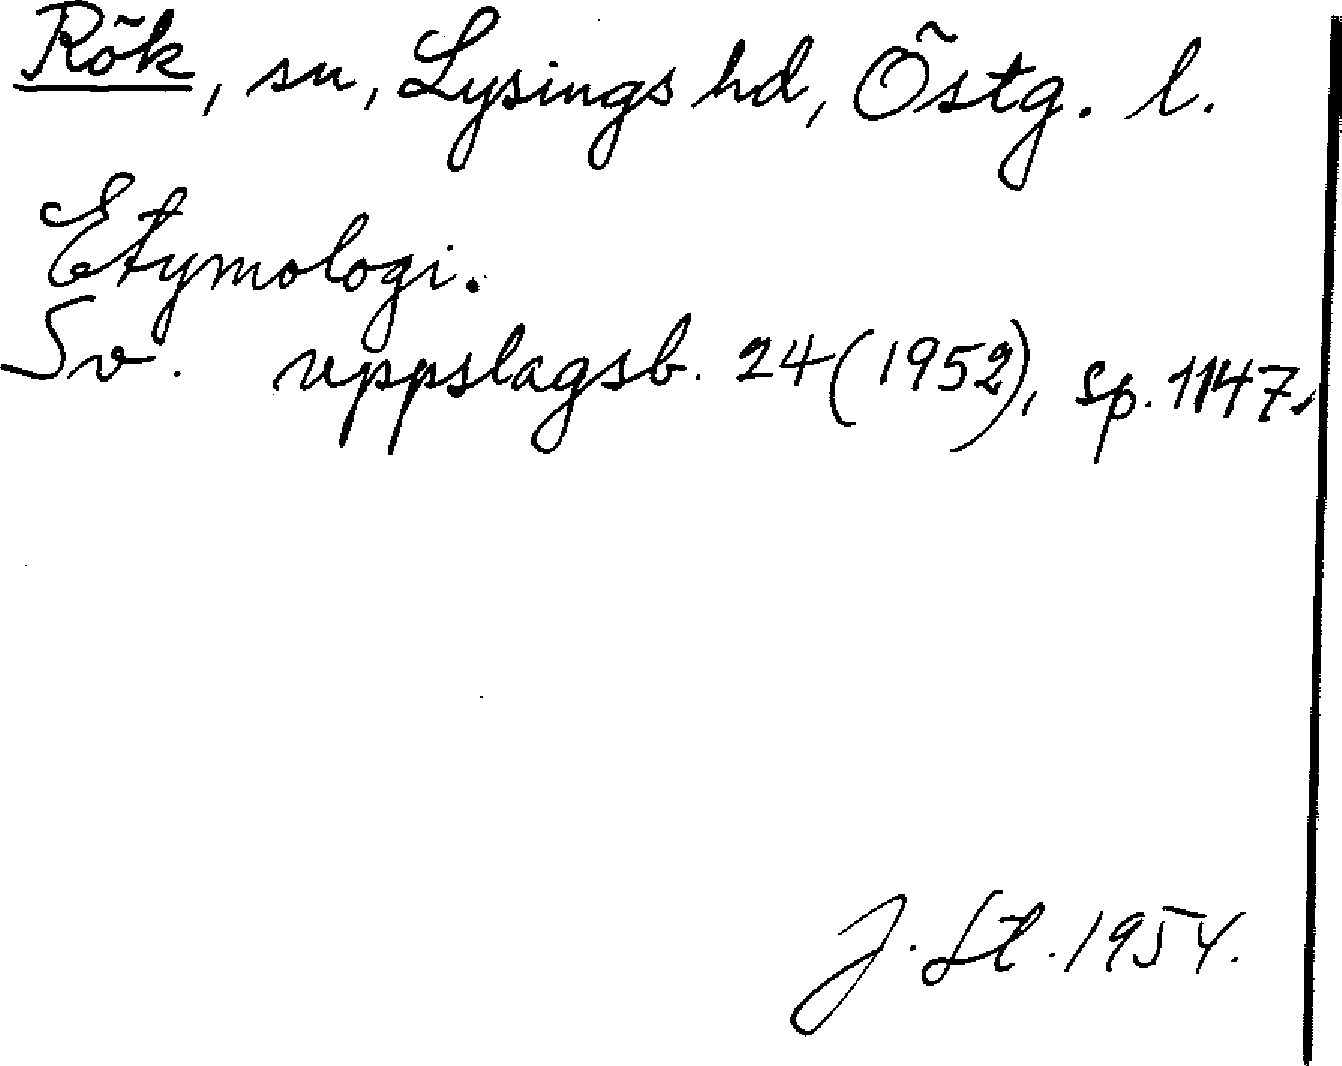 Rök, sn, Lysings hd, Östg. l.
Etymologi.
Sv. uppslagsb. 24 (1952), sp. 1147.
J. St. 1954.